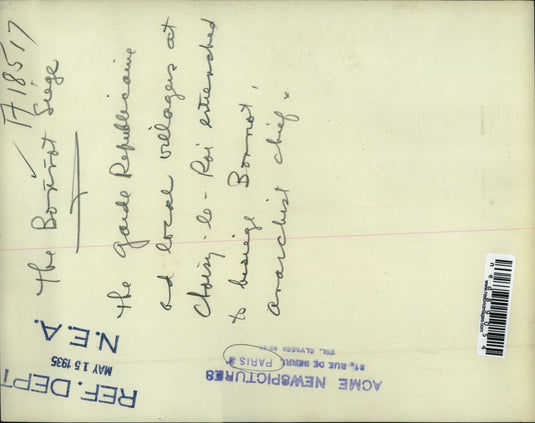 TA18517
The Bonnot Siege
The garde Republicaine
and local villagers at
Choisy-le-Roi entrenched
to besiege Bonnot,
anarchist chief.
REF. DEPT
MAY 15 1935
N.E.A.
ACME NEWSPICTURES
21, RUE DE BERRI, PARIS 8
TEL. ELYSEES